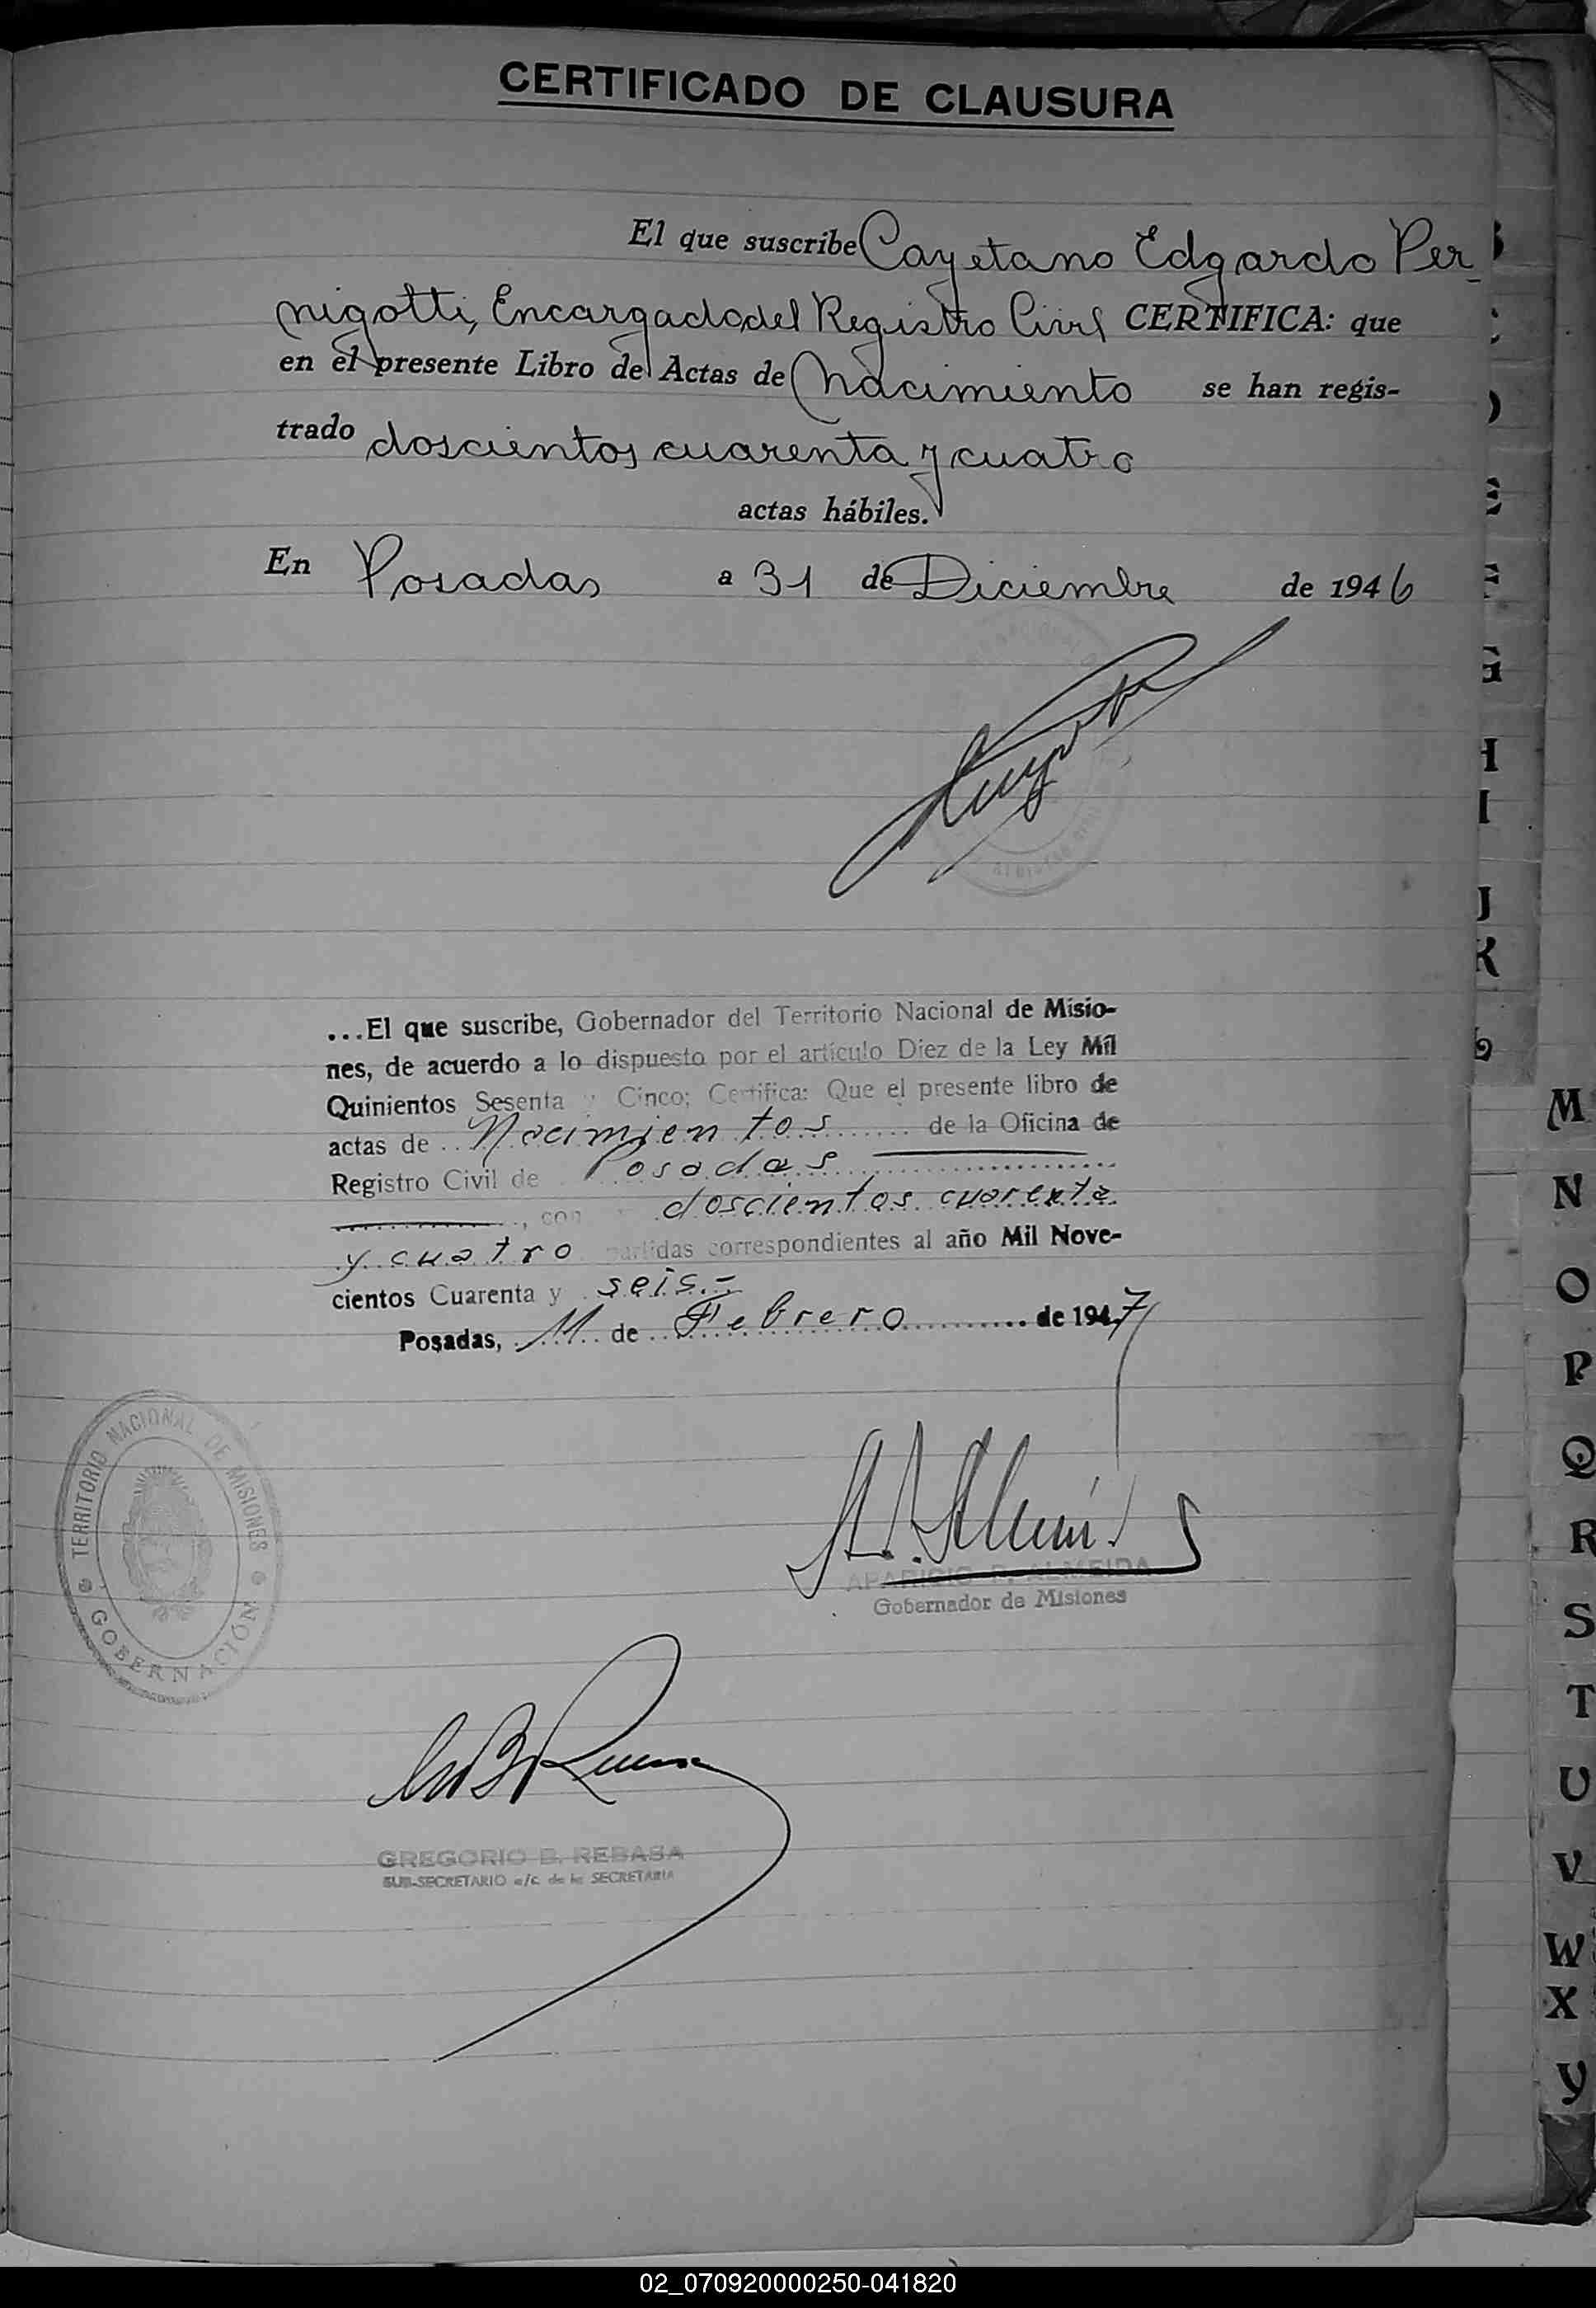 CERTIFICADO DE CLAUSURA
El que suscribe Cayetano Edgardo Per-
nigotti, Encargado del Registro Civil CERTIFICA: que
en el presente Libro de Actas de Nacimiento se han regis-
trado doscientos cuarenta y cuatro
actas hábiles.
En Posadas a 31 de Diciembre de 1946
...El que suscribe, Gobernador del Territorio Nacional de Misio-
nes, de acuerdo a lo dispuesto por el artículo Diez de la Ley Mil
Quinientos Sesenta y Cinco; Certifica: Que el presente libro de
actas de Nacimientos de la Oficina de
Registro Civil de Posadas
, con doscientos cuarenta
y cuatro partidas correspondientes al año Mil Nove-
cientos Cuarenta y seis.-
Posadas, 11 de Febrero de 1947
TERRITORIO NACIONAL DE MISIONES
GOBERNACIÓN
APARICIO P. ALMEIDA
Gobernador de Misiones
GREGORIO B. REBASA
SUB-SECRETARIO a/c. de la SECRETARIA
G
H
I
J
K
M
N
O
P
Q
R
S
T
U
V
W
X
Y
02_070920000250-041820